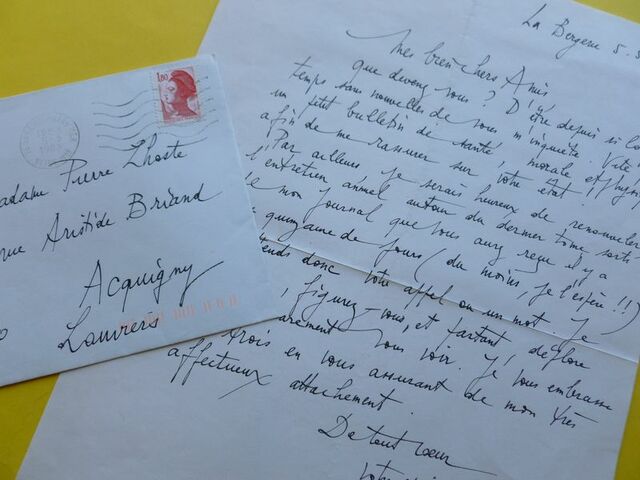 1,80
Madame Pierre Lhoste
rue Aristide Briand
Acquigny
Louviers
La Bergerie 5.
Mes bien chers Amis
que devenez vous ? D'être depuis si lo
temps sans nouvelles de vous m'inquiète. Vite
un petit bulletin de santé, morale et phys
afin de me rassurer sur votre état !
Par ailleurs je serais heureux de renouveler
l'entretien annuel autour du dernier tome sorti
de mon journal que vous avez reçu il y a
quinzaine de jours (du moins, je l'espère !!)
tends donc votre appel ou un mot. Je
, figurez-vous, et partant déplore
rarement vous voir. Je vous embrasse
trois en vous assurant de mon très
affectueux attachement.
De tout cœur